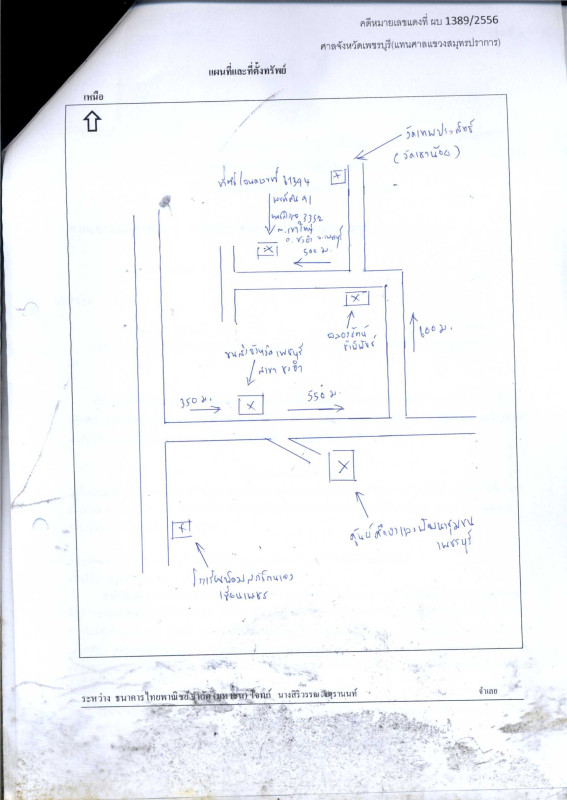 คดีหมายเลขแดงที่ ผบ 1389/2556
ศาลจังหวัดเพชรบุรี(แทนศาลแขวงสมุทรปราการ)
แผนที่และที่ตั้งทรัพย์
เหนือ
วัดเทพประสิทธิ์
(วัดเขาน้อย)
ที่ดินโฉนดเลขที่ 61394
3352
ต.เขาใหญ่
อ. ชะอำ จ.เพชรบุรี
500 ม.
600 ม.
ขนส่งจังหวัดเพชรบุรี
สาขา ชะอำ
350 ม.
550 ม.
ศูนย์ศึกษาและพัฒนาชุมชน
เพชรบุรี
ระหว่าง ธนาคารไทยพาณิชย์ จำกัด (มหาชน) โจทก์ นางสิริวรรณ
จำเลย